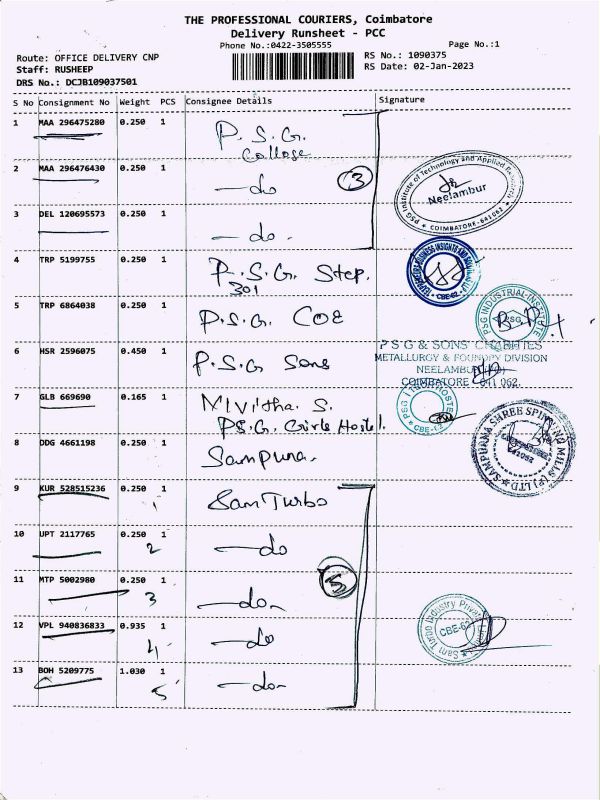 THE PROFESSIONAL COURIERS, Coimbatore
Delivery Runsheet - PCC
Phone No.:0422-3505555
Page No.:1
Route: OFFICE DELIVERY CNP
RS No.: 1090375
Staff: RUSHEEP
RS Date: 02-Jan-2023
DRS No.: DCJB109037501
S No Consignment No Weight PCS Consignee Details Signature
1 MAA 296475280 0.250 1 P.S.G. College
2 MAA 296476430 0.250 1 —do
3
PSG Institute of Technology and Applied Research
Neelambur
COIMBATORE-641062
3 DEL 120695573 0.250 1 —do.
4 TRP 5199755 0.250 1 P.S.G. Step.
301
CBE-62
5 TRP 6864038 0.250 1 P.S.G. COE
PSG INDUSTRIAL INSTITUTE
PSG
6 HSR 2596075 0.450 1 P.S.G Sons
P S G & SONS' CHARITIES
METALLURGY & FOUNDRY DIVISION
NEELAMBUR
COIMBATORE - 641 062.
7 GLB 669690 0.165 1
P.S.G. Girls Hostel.
PSG HOSTEL
CBE-
8 DDG 4661198 0.250 1 Sampuna.
SAMPURNA SHREE SPINNING MILLS (P) LTD
9 KUR 528515236 0.250 1 Sam Turbo
1
10 UPT 2117765 0.250 1 —do
2
11 MTP 5002980 0.250 1 —do-
3
5
12 VPL 940836833 0.935 1 —do
4
Sam Turbo Industry Private
CBE-62
13 BOH 5209775 1.030 1 —do-
5